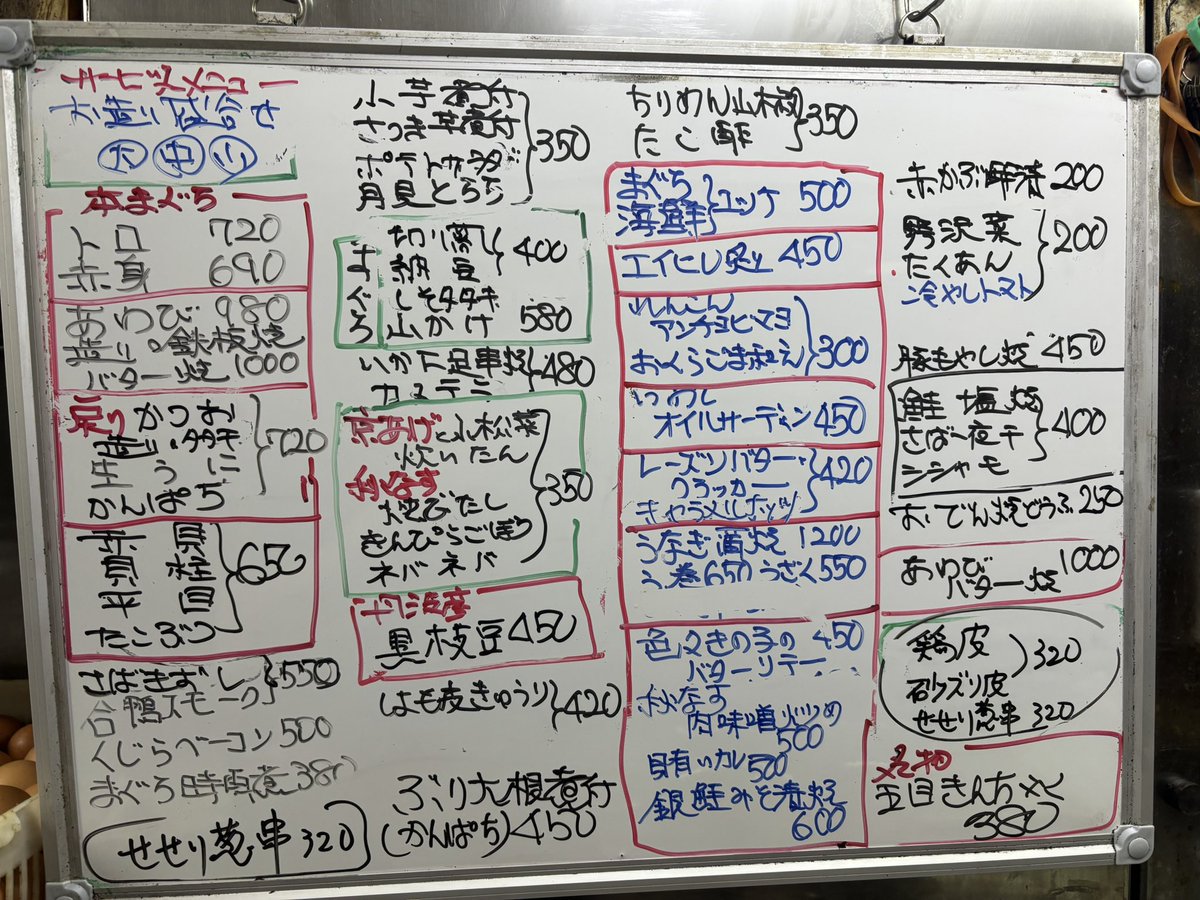 サービスメニュー
お造り盛合せ
大 中 小
本まぐろ
トロ 720
赤身 690
あわび 980
造り・鉄板焼
バター焼 1000
戻りかつお
造り・タタキ
生うに 720
かんぱち
赤貝
貝柱 650
平貝
たこぶつ
さばきずし 550
合鴨スモーク
くじらベーコン 500
まぐろ時雨煮 380
せせり葱串 320
小芋煮付
さつき芋煮付 350
ポテトサラダ
月見とろろ
まぐろ
切り落 400
納豆
しそタタキ
山かけ 580
いか下足串焼 480
カステラ
京あげと小松菜
炊いたん
秋なす 350
焼びたし
きんぴらごぼう
ネバネバ
丹波産
黒枝豆 450
はも皮きゅうり 420
ぶり大根煮付
(かんぱち) 450
ちりめん山椒 350
たこ酢
まぐろ ユッケ 500
海鮮
エイヒレ炙り 450
れんこん
アンチョビマヨ 300
おくらごま和え
いわし
オイルサーディン 450
レーズンバター・ 420
クラッカー
キャラメルナッツ
うなぎ蒲焼 1200
う巻 650 うざく 550
色々きの子の 450
バターソテー
秋なす
肉味噌炒め
500
貝有りカレ 500
銀鮭みそ漬焼
600
赤かぶ酢漬 200
野沢菜
たくあん 200
冷やしトマト
豚もやし炒 450
鮭塩焼
さば一夜干 400
シシャモ
おでん焼どうふ 250
あわび 1000
バター焼
鶏皮 320
砂ズリ皮
せせり葱串 320
名物
五目きんちゃく
380